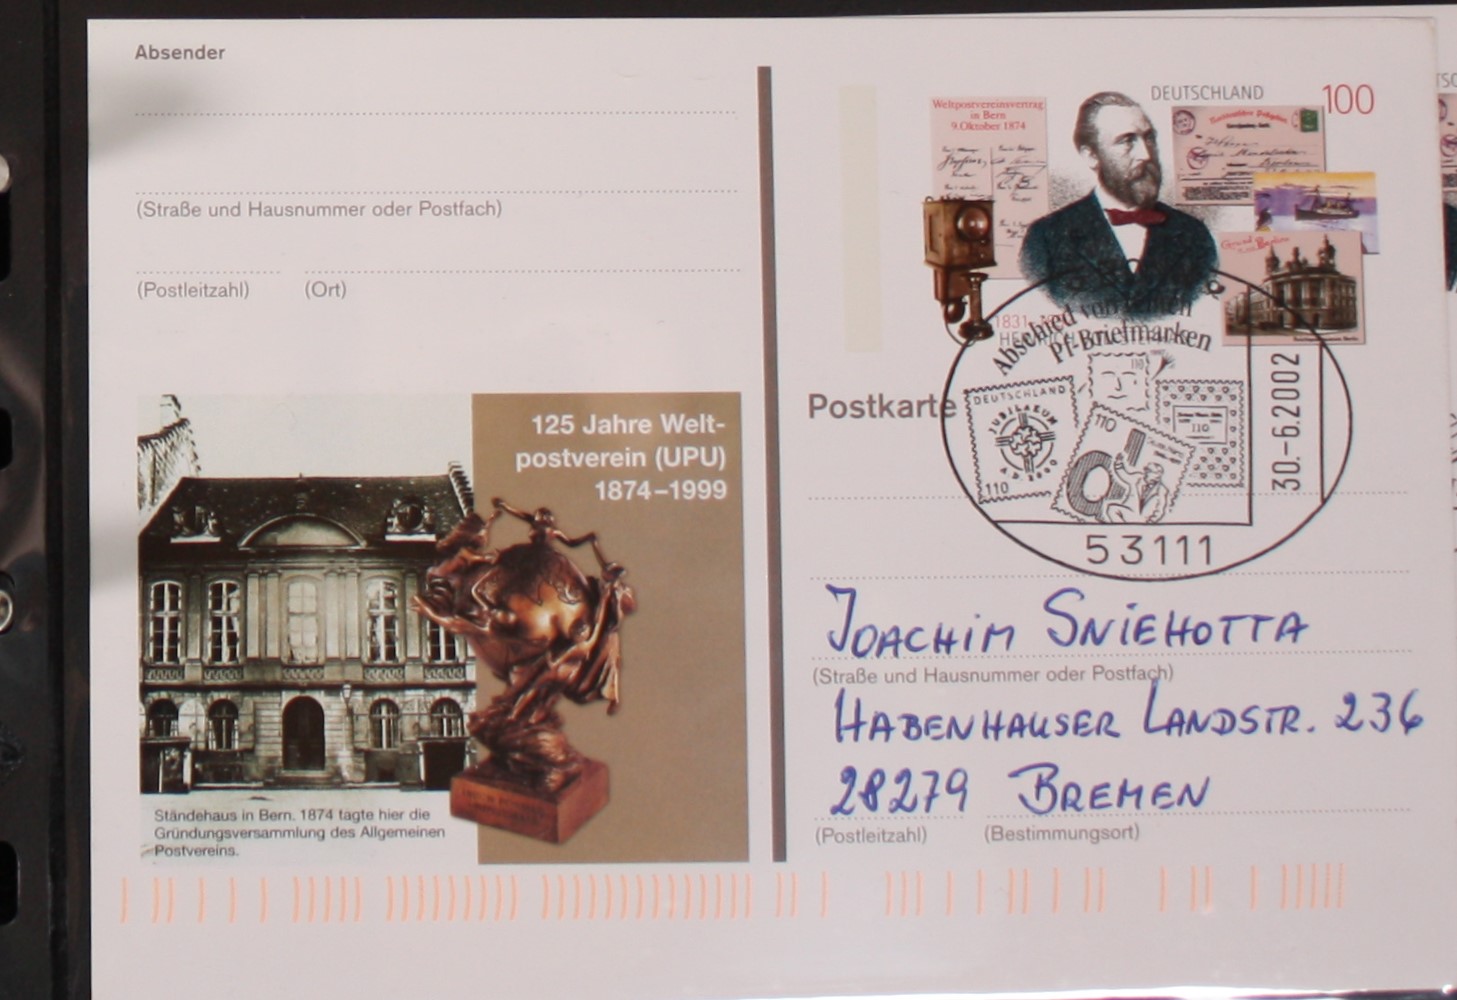 Absender
(Straße und Hausnummer oder Postfach)
(Postleitzahl) (Ort)
125 Jahre Welt-
postverein (UPU)
1874–1999
Ständehaus in Bern. 1874 tagte hier die
Gründungsversammlung des Allgemeinen
Postvereins.
DEUTSCHLAND 100
Weltpostvereinsvertrag
in Bern
9.Oktober 1874
1831
Abschied von
Pf-Briefmarken
Postkarte
DEUTSCHLAND
JUBILAEUM
110
110
110
110
30.-6.2002
53111
JOACHIM SNIEHOTTA
(Straße und Hausnummer oder Postfach)
HABENHAUSER LANDSTR. 236
28279 BREMEN
(Postleitzahl) (Bestimmungsort)